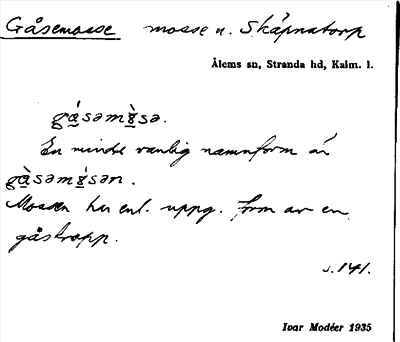 Gåsemosse mosse n. Skäpnatorp
Ålems sn, Stranda hd, Kalm. l.
En mindre vanlig namnform är
Mossen har enl. uppg. form av en
gåskropp.
s. 141.
Ivar Modéer 1935